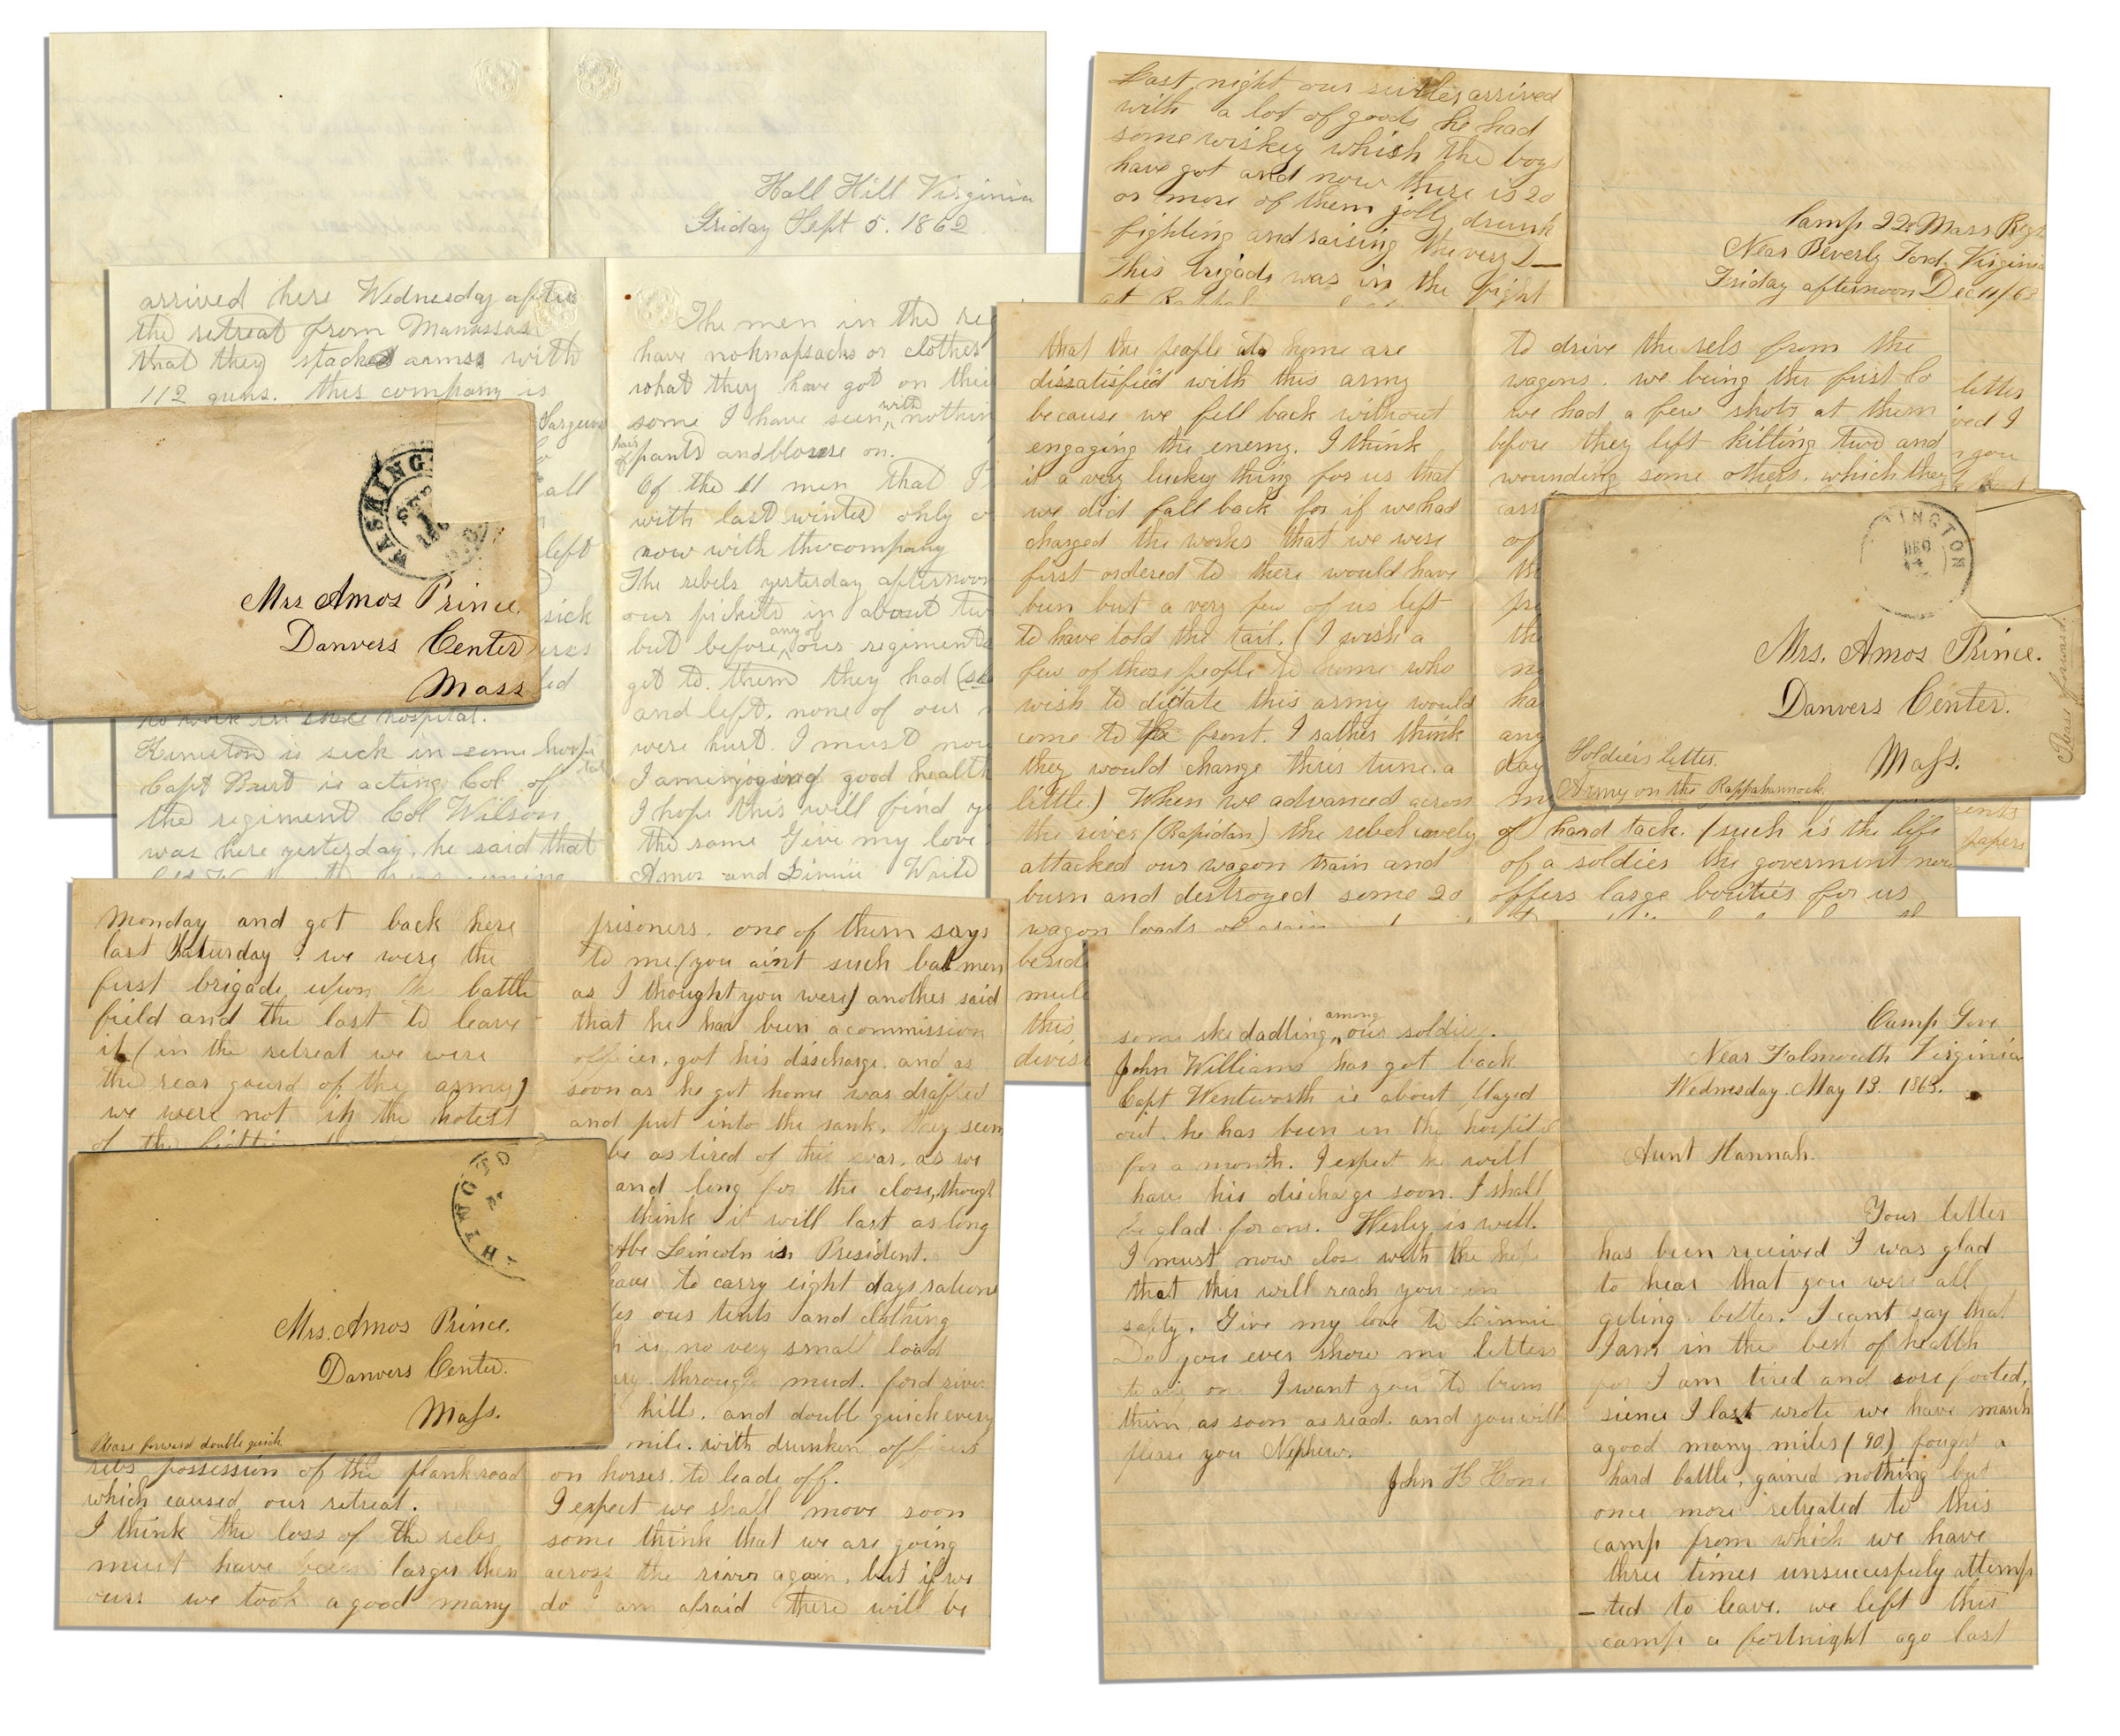 Hall Hill Virginia
Friday Sept 5. 1862
arrived here Wednesday after
the retreat from Manassas
that they stacked arms with
112 guns. this company is
Sargeun
all
left
sick
to work in hospital.
is sick in some hospi
tal
Capt Burt is acting Col. of
the regiment Col Wilson
was here yesterday, he said that
The men in the reg
have noknapsacks or clothes
what they have got on thei
some I have seen with nothin
pants and blouse on.
Of the 11 men that I
with last winter only
now with the company
The rebels yesterday afternoon
our pickets in about tw
but before any of our regiments
got to them they had (sk
and left. none of our
were hurt. I must now
I am injoying good health
I hope this will find y
the same Give my love
Amos and Linnie Write
Mrs Amos Prince.
Danvers Center
Mass
Last night our sutler arrived
with a lot of goods he had
some wiskey which the boys
have got and now there is 20
or more of them jolly drunk
fighting and raising the very D—
This brigade was in the fight
Camp 22d Mass Regt
Near Beverly Ford, Virginia
Friday afternoon Dec 11/63
letter
ved I
you
papers
that the people at home are
dissatisfied with this army
because we fell back without
engaging the enemy. I think
it a very luckey thing for us that
we did fall back for if we had
charged the works that we were
first ordered to there would have
been but a very few of us left
to have told the tail. (I wish a
few of those people to home who
wish to dictate this army would
come to the front. I rather think
they would change thier tune. a
little.) When we advanced across
the river (Rapidan) the rebel cavely
attacked our wagon train and
burn and destroyed some 20
wagon loads of
besid
mule
this
devis
to drive the rebs from the
wagons. we being the first Co
we had a few shots at them
before they left killing two and
wounding some others. which they
of
any
day
of hard tack. (such is the life
of a soldier the goverment now
offers large bouties for us
WASHINGTON
DEC
Mrs. Amos Prince.
Danvers Center.
Mass.
Soldiers letter.
Army on the Rappahannock.
Please forward.
monday and got back here
last Saturday. we were the
first brigade upon the battle
field and the last to leave
it (in the retreat we were
the rear gourd of the army)
we were not in the hotest
Mrs. Amos Prince.
Danvers Center.
Mass.
Please forward double quick
rebs possession of the plank road
which caused our retreat.
I think the loss of the rebs
must have been larger then
ours we took a good many
prisoners. one of them says
to me (you aint such bad men
as I thought you were) another said
that he had been a commission
officer, got his discharge, and as
soon as he got home was drafted
and put into the rank. they seem
be as tired of this war, as we
and long for the close, though
think it will last as long
Abe Lincoln is President.
have to carry eight days rations
es our tents and clothing
h is no very small load
through mud. ford river
hills. and double quick every
mile. with drunken officers
on horses to leade off.
I expect we shall move soon
some think that we are going
across the river again, but if we
do I am afraid there will be
some skedadling among our soldiers.
John Williams has got back
Capt Wentworth is about played
out. he has been in the hospital
for a month. I expect he will
have his discharge soon. I shall
be glad for one. Wesley is well.
I must now close with the hope
that this will reach you in
safty. Give my love to Linnie
Do you ever show my letters
to any one I want you to burn
them as soon as read. and you will
please you Nephew.
John H
Camp Gove
Near Falmouth Virginia
Wednesday. May 13. 1863.
Aunt Hannah.
Your letter
has been received I was glad
to hear that you were all
geting better. I cant say that
I am in the best of health
for I am tired and sore footed,
sience I last wrote we have march
agood many miles (90) fought a
hard battle, gained nothing but
once more retreated to this
camp from which we have
three times unsuccesfuly attemp
-ted to leave. we left this
camp a fortnight ago last